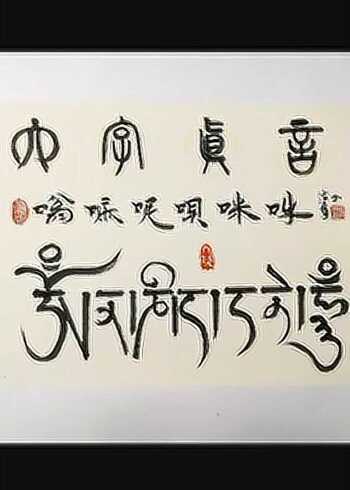 六字眞言
嗡嘛呢唄咪吽
ཨོཾ་མ་ཎི་པད་མེ་ཧཱུྃ